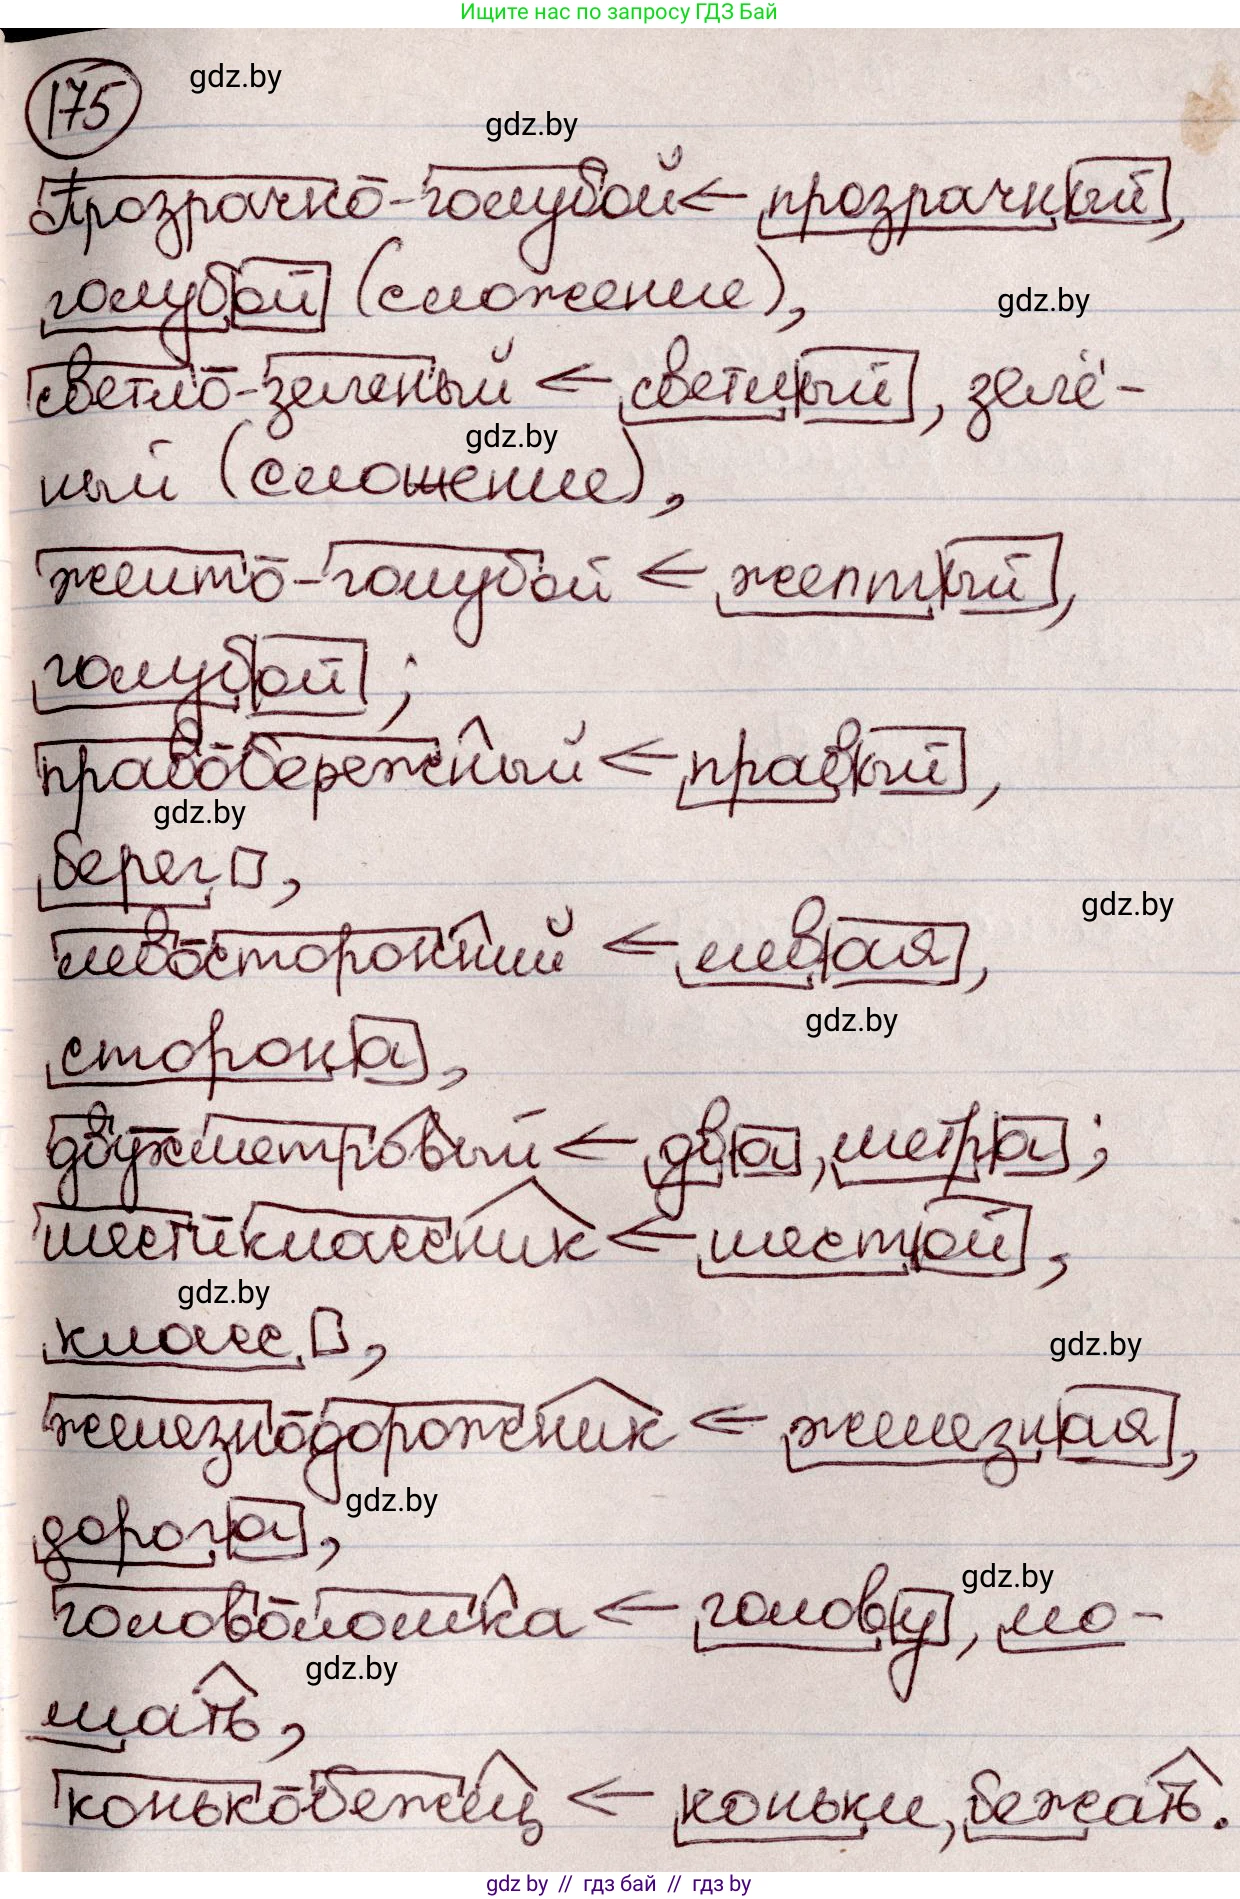 Ищите нас по запросу ГДЗ Бай
175
gdz.by
gdz.by
Прозрачно-голубой ← прозрачный,
голубой (сложение),
gdz.by
светло-зеленый ← светлый, зелё-
gdz.by
ный (сложение),
желто-голубой ← желтый,
голубой;
правобережный ← правый,
gdz.by
берег,
gdz.by
левосторонний ← левая,
gdz.by
сторона,
двухметровый ← два, метра;
шестиклассник ← шестой,
gdz.by
класс,
gdz.by
железнодорожник ← железная,
дорога,
gdz.by
gdz.by
головоломка ← голову, ло-
gdz.by
мать,
конькобежец ← коньки, бежать.
gdz.by // гдз бай // гдз by